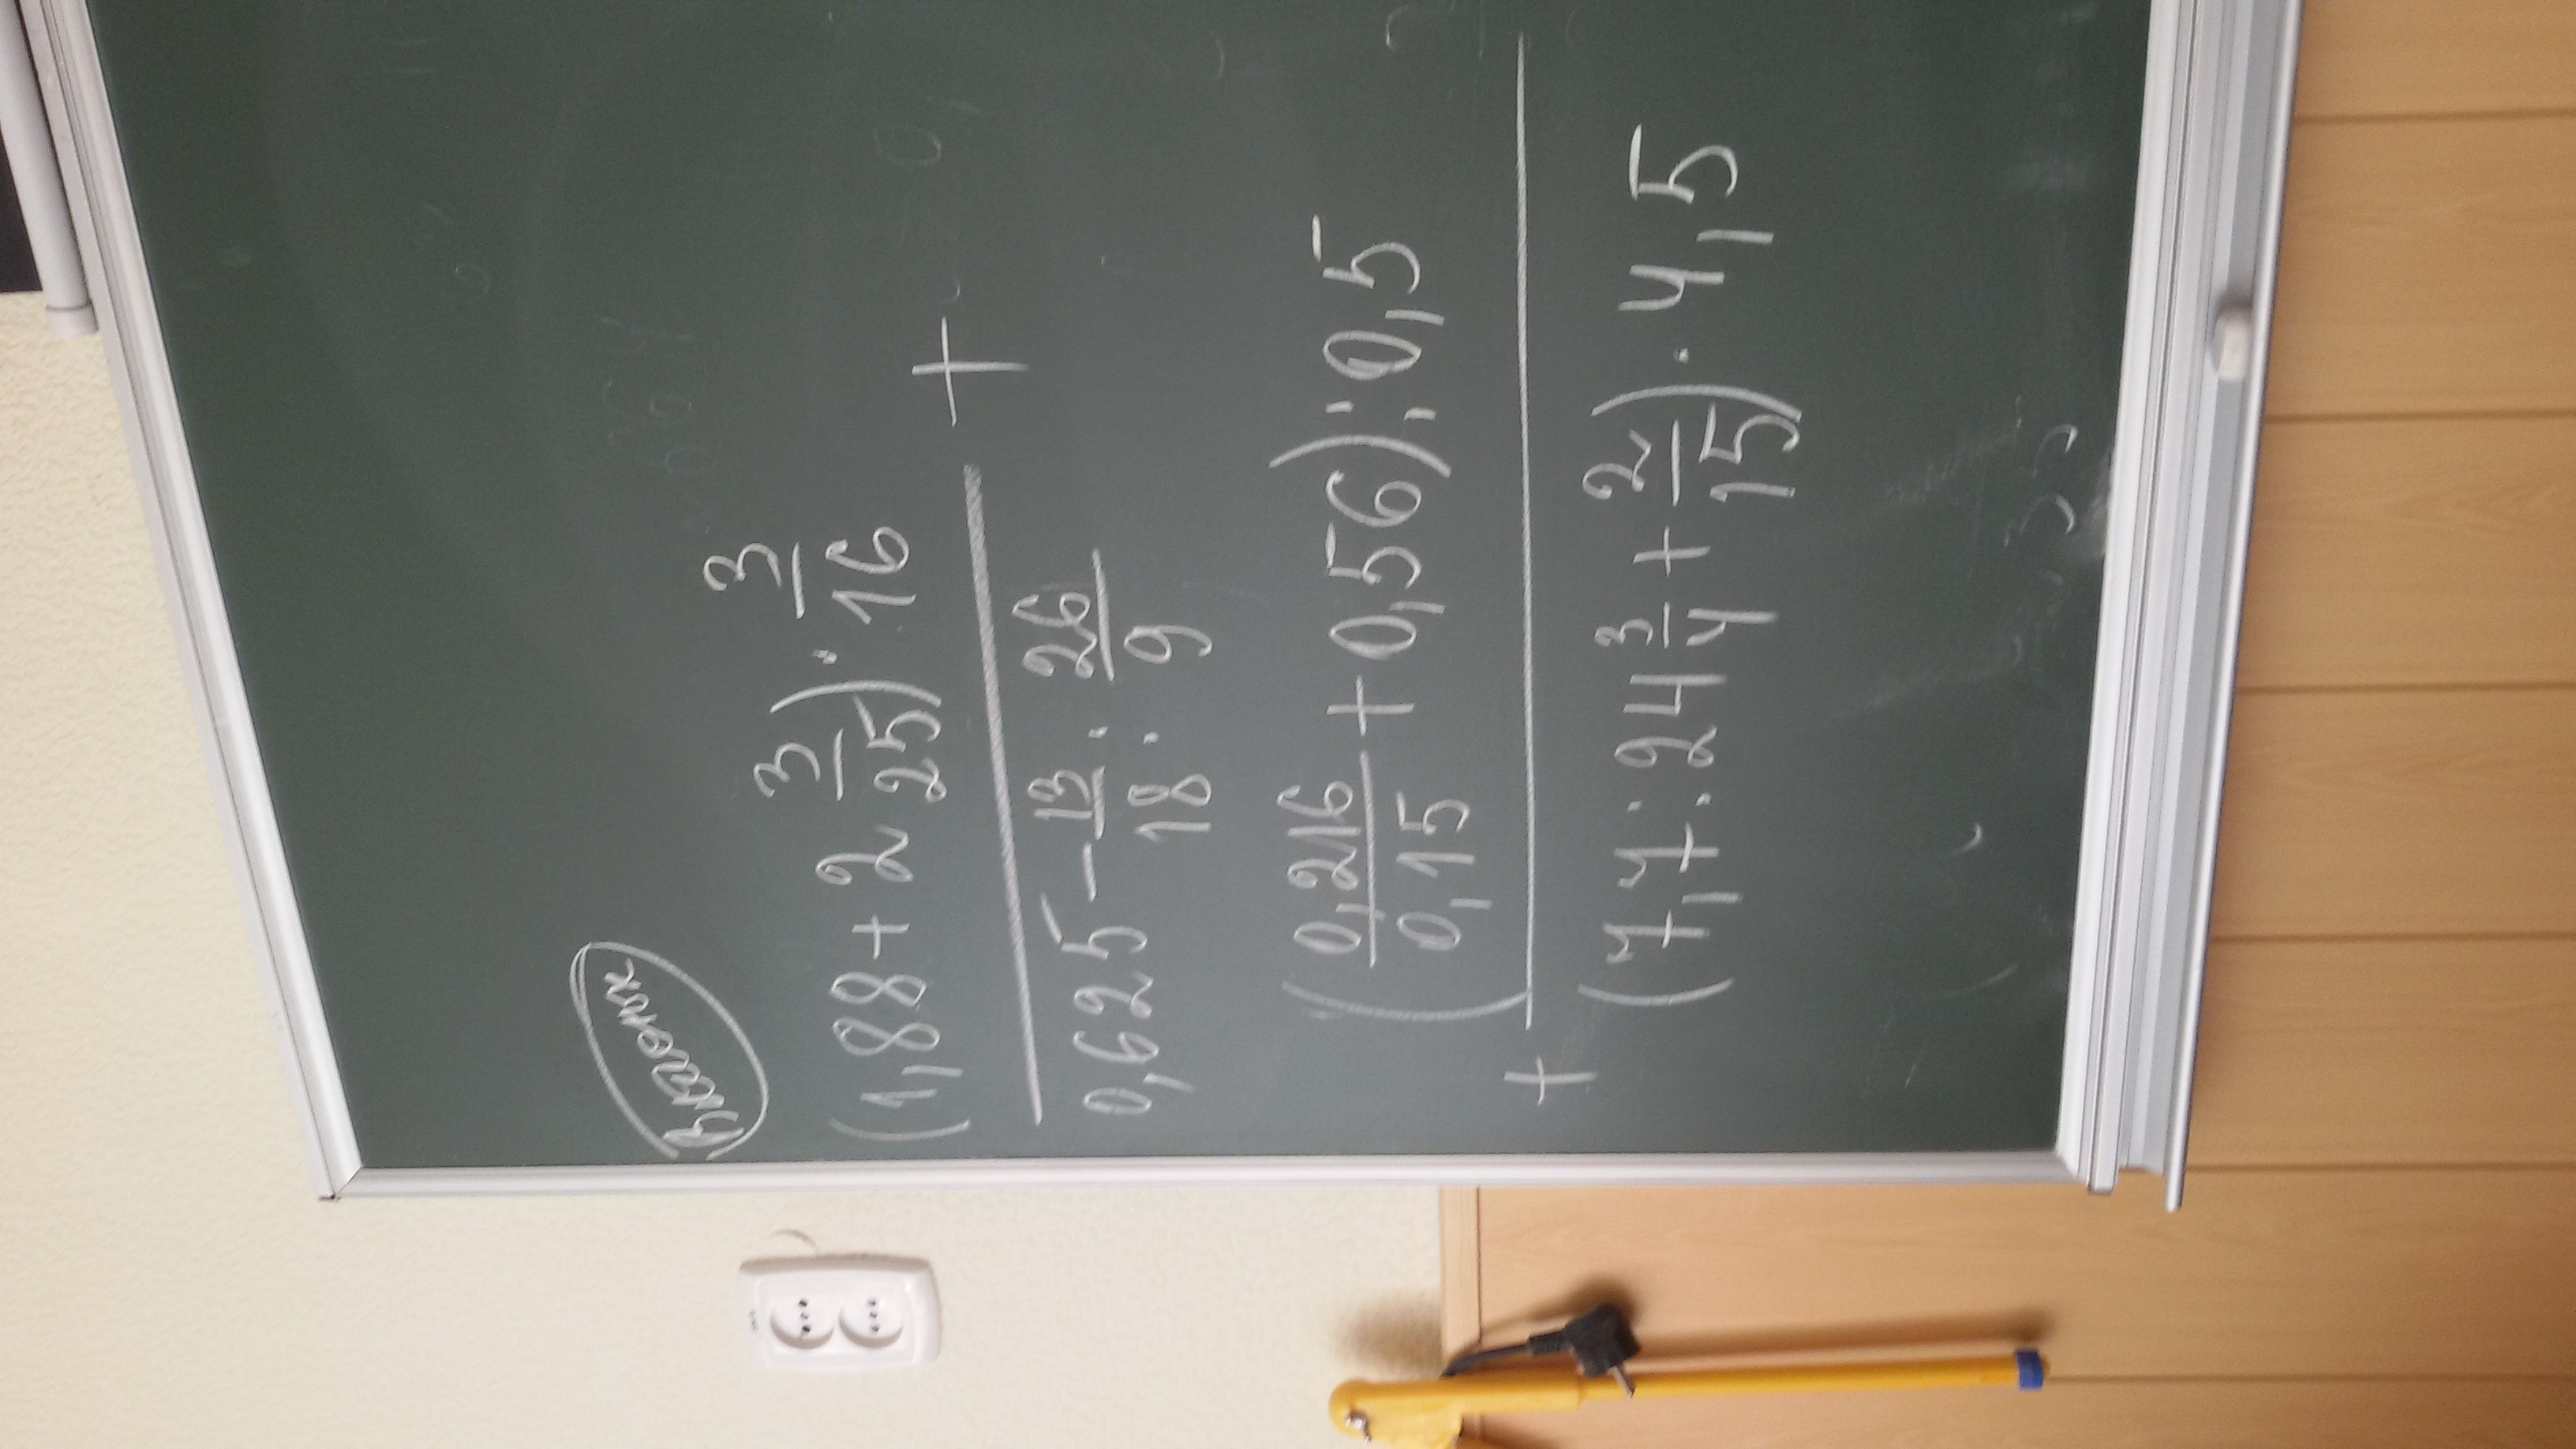 (1,88 + 2 3/25) · 3/16
0,625 − 13/18 : 26/9 +
+ (0,216/0,15 + 0,56) : 0,5
(7,7 : 24 3/4 + 2/15) · 4,5